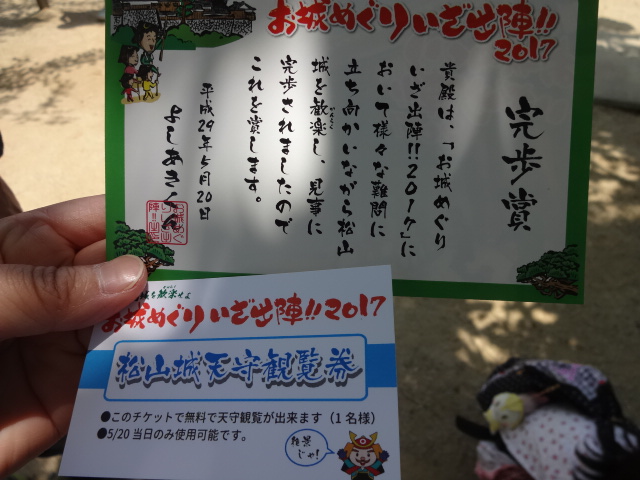 お城めぐりいざ出陣!!
2017
完歩賞
貴殿は、「お城めぐり
いざ出陣!!2017」に
おいて様々な難問に
立ち向かいながら松山
城を歓楽し、見事に
完歩されましたので
これを賞します。
平成29年5月20日
よしあきくん
お城めぐりいざ出陣!!2017
松山城天守観覧券
●このチケットで無料で天守観覧が出来ます(1名様)
●5/20 当日のみ使用可能です。
絶景
じゃ!